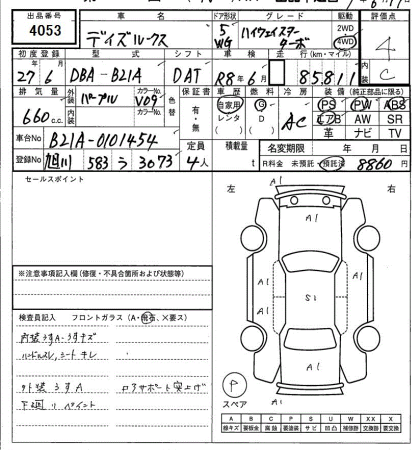 出品番号 車名 ドア形状 グレード 駆動 評価点
4053 デイズルークス 5 WG ハイウェイスター ターボ 2WD 4WD 4
初度登録 型式 シフト 車検 走行(km・マイル) 内装
27年6月 DBA-B21A DAT R8年6月 85811 C
排気量 外装 カラーNo. 色替 保証書 車歴 燃料 冷房 装備(純正部品に限る)
660cc パープル V09 有・無 自家用 G AC PS PW ABS
内装 カラーNo. レンタ D エアB AW SR
( ) ( ) 革 ナビ TV
車台No B21A-0101454 定員 積載量 名変期限 年 月 日
登録No 旭川 583 う 3073 4人 t R料金 未預託・預託済 8860円
セールスポイント
左 右
A1
A1
A1 A1
S1
A1
A1
A1
※注意事項記入欄(修復・不具合箇所および状態等)
検査員記入 フロントガラス(A・飛石、X要ス)
内装うすA・うすキズ
シートキレ
外装うすA ロアサポート突上げ
下廻り ペイント
P
スペア
A B C P S U W X XX
線キズ 要板金 腐蝕 要塗装 サビ 凹凸 補修跡 要交換 交換跡